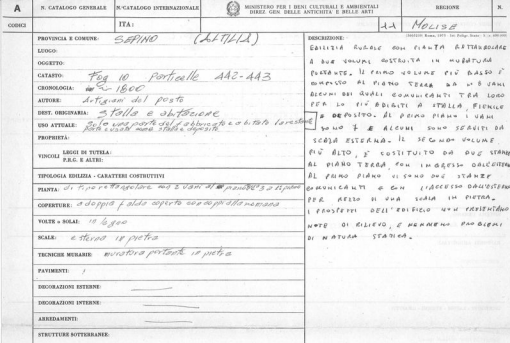 A
N. CATALOGO GENERALE
N. CATALOGO INTERNAZIONALE
MINISTERO PER I BENI CULTURALI E AMBIENTALI
DIREZ. GEN. DELLE ANTICHITA' E BELLE ARTI
REGIONE
N.
CODICI
ITA:
11
MOLISE
PROVINCIA E COMUNE: SEPINO
LUOGO:
OGGETTO:
CATASTO: Fog 10 Particelle 442-443
CRONOLOGIA: 1800
AUTORE: Artigiani del posto
DEST. ORIGINARIA: Stalla e abitazione
USO ATTUALE: Solo una parte del fabbricato è abitato la restante
parte
PROPRIETÀ:
VINCOLI
LEGGI DI TUTELA:
P.R.G. E ALTRI:
TIPOLOGIA EDILIZIA - CARATTERI COSTRUTTIVI
PIANTA: di tipo rettangolare con 3 vani al
COPERTURE: a doppia falda coperto con coppi alla romana
VOLTE o SOLAI: in legno
SCALE: esterna in pietra
TECNICHE MURARIE: muratura portante in pietra
PAVIMENTI:
DECORAZIONI ESTERNE:
DECORAZIONI INTERNE:
ARREDAMENTI:
STRUTTURE SOTTERRANEE:
DESCRIZIONE:
EDILIZIA RURALE CON PIANTA RETTANGOLARE
A DUE VOLUMI COSTRUITA IN MURATURA
PORTANTE. IL PRIMO VOLUME PIÙ BASSO È
COMPOSTO AL PIANO TERRA DA N° 3 VANI
ALCUNI DEI QUALI COMUNICANTI TRA LORO
PER LO PIÙ ADIBITI A STALLA, FIENILE
E DEPOSITO. AL PRIMO PIANO I VANI
SONO 7 E ALCUNI SONO SERVITI DA
SCALA ESTERNA. IL SECONDO VOLUME
PIÙ ALTO, È COSTITUITO DA DUE STANZE
AL PIANO TERRA, CON INGRESSO DALL'ESTERNO
AL PRIMO PIANO VI SONO DUE STANZE
COMUNICANTI E CON L'ACCESSO DALL'ESTERNO
PER MEZZO DI UNA SCALA IN PIETRA.
I PROSPETTI DELL'EDIFICIO NON PRESENTANO
NOTE DI RILIEVO, E NEMMENO PROBLEMI
DI NATURA STATICA.